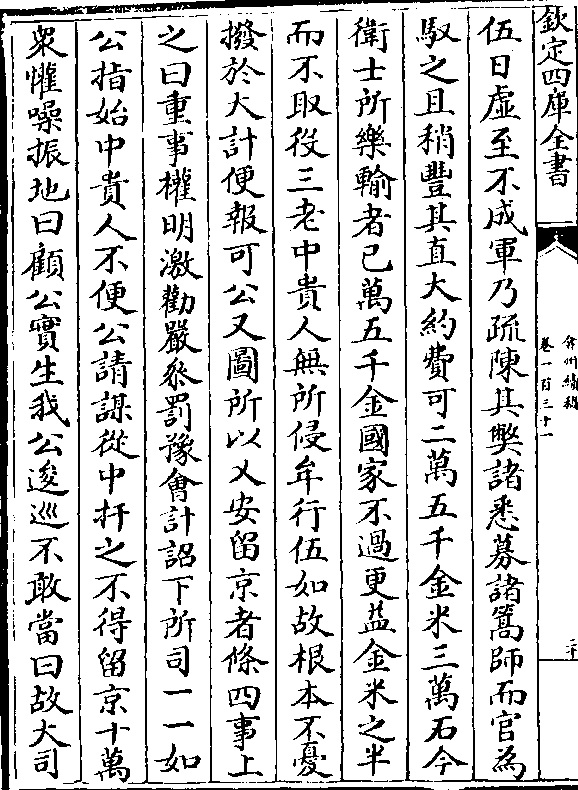 欽定四庫全書
弇州續稿
卷一百三十一
二十
伍日虛至不成軍乃疏陳其弊諸悉募諸篙師而官為
馭之且稍豐其直大約費可二萬五千金米三萬石今
衛士所樂輸者已萬五千金國家不過更益金米之半
而不取役三老中貴人無所侵牟行伍如故根本不憂
撥於大計便報可公又圖所以乂安留京者條四事上
之曰重事權明激勸嚴參罰豫會計詔下所司一一如
公指始中貴人不便公請謀從中扞之不得留京十萬
衆懽噪振地曰顧公實生我公逡巡不敢當曰故大司